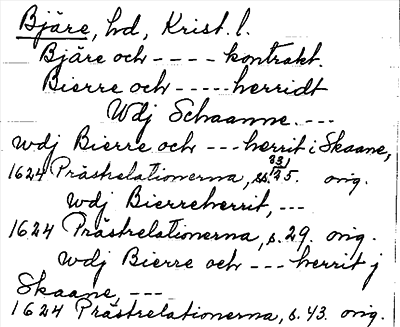 Bjäre, hd, Krist. l.
Bjäre och - - - - kontrakt.
Bierre och - - - - - herridt
Wdj Schaanne. - - -
wdj Bierre och - - - herrit i Skaane,
1624 Prästrelationerna, s. 25. orig.
wdj Bierreherrit, - - -
1624 Prästrelationerna, s. 29. orig.
wdj Bierre och - - - herrit j
Skaane, - - -
1624 Prästrelationerna, s. 43. orig.